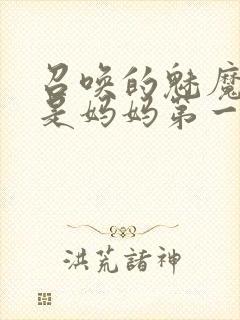 召唤的魅魔
是妈妈第一
洪荒諸神